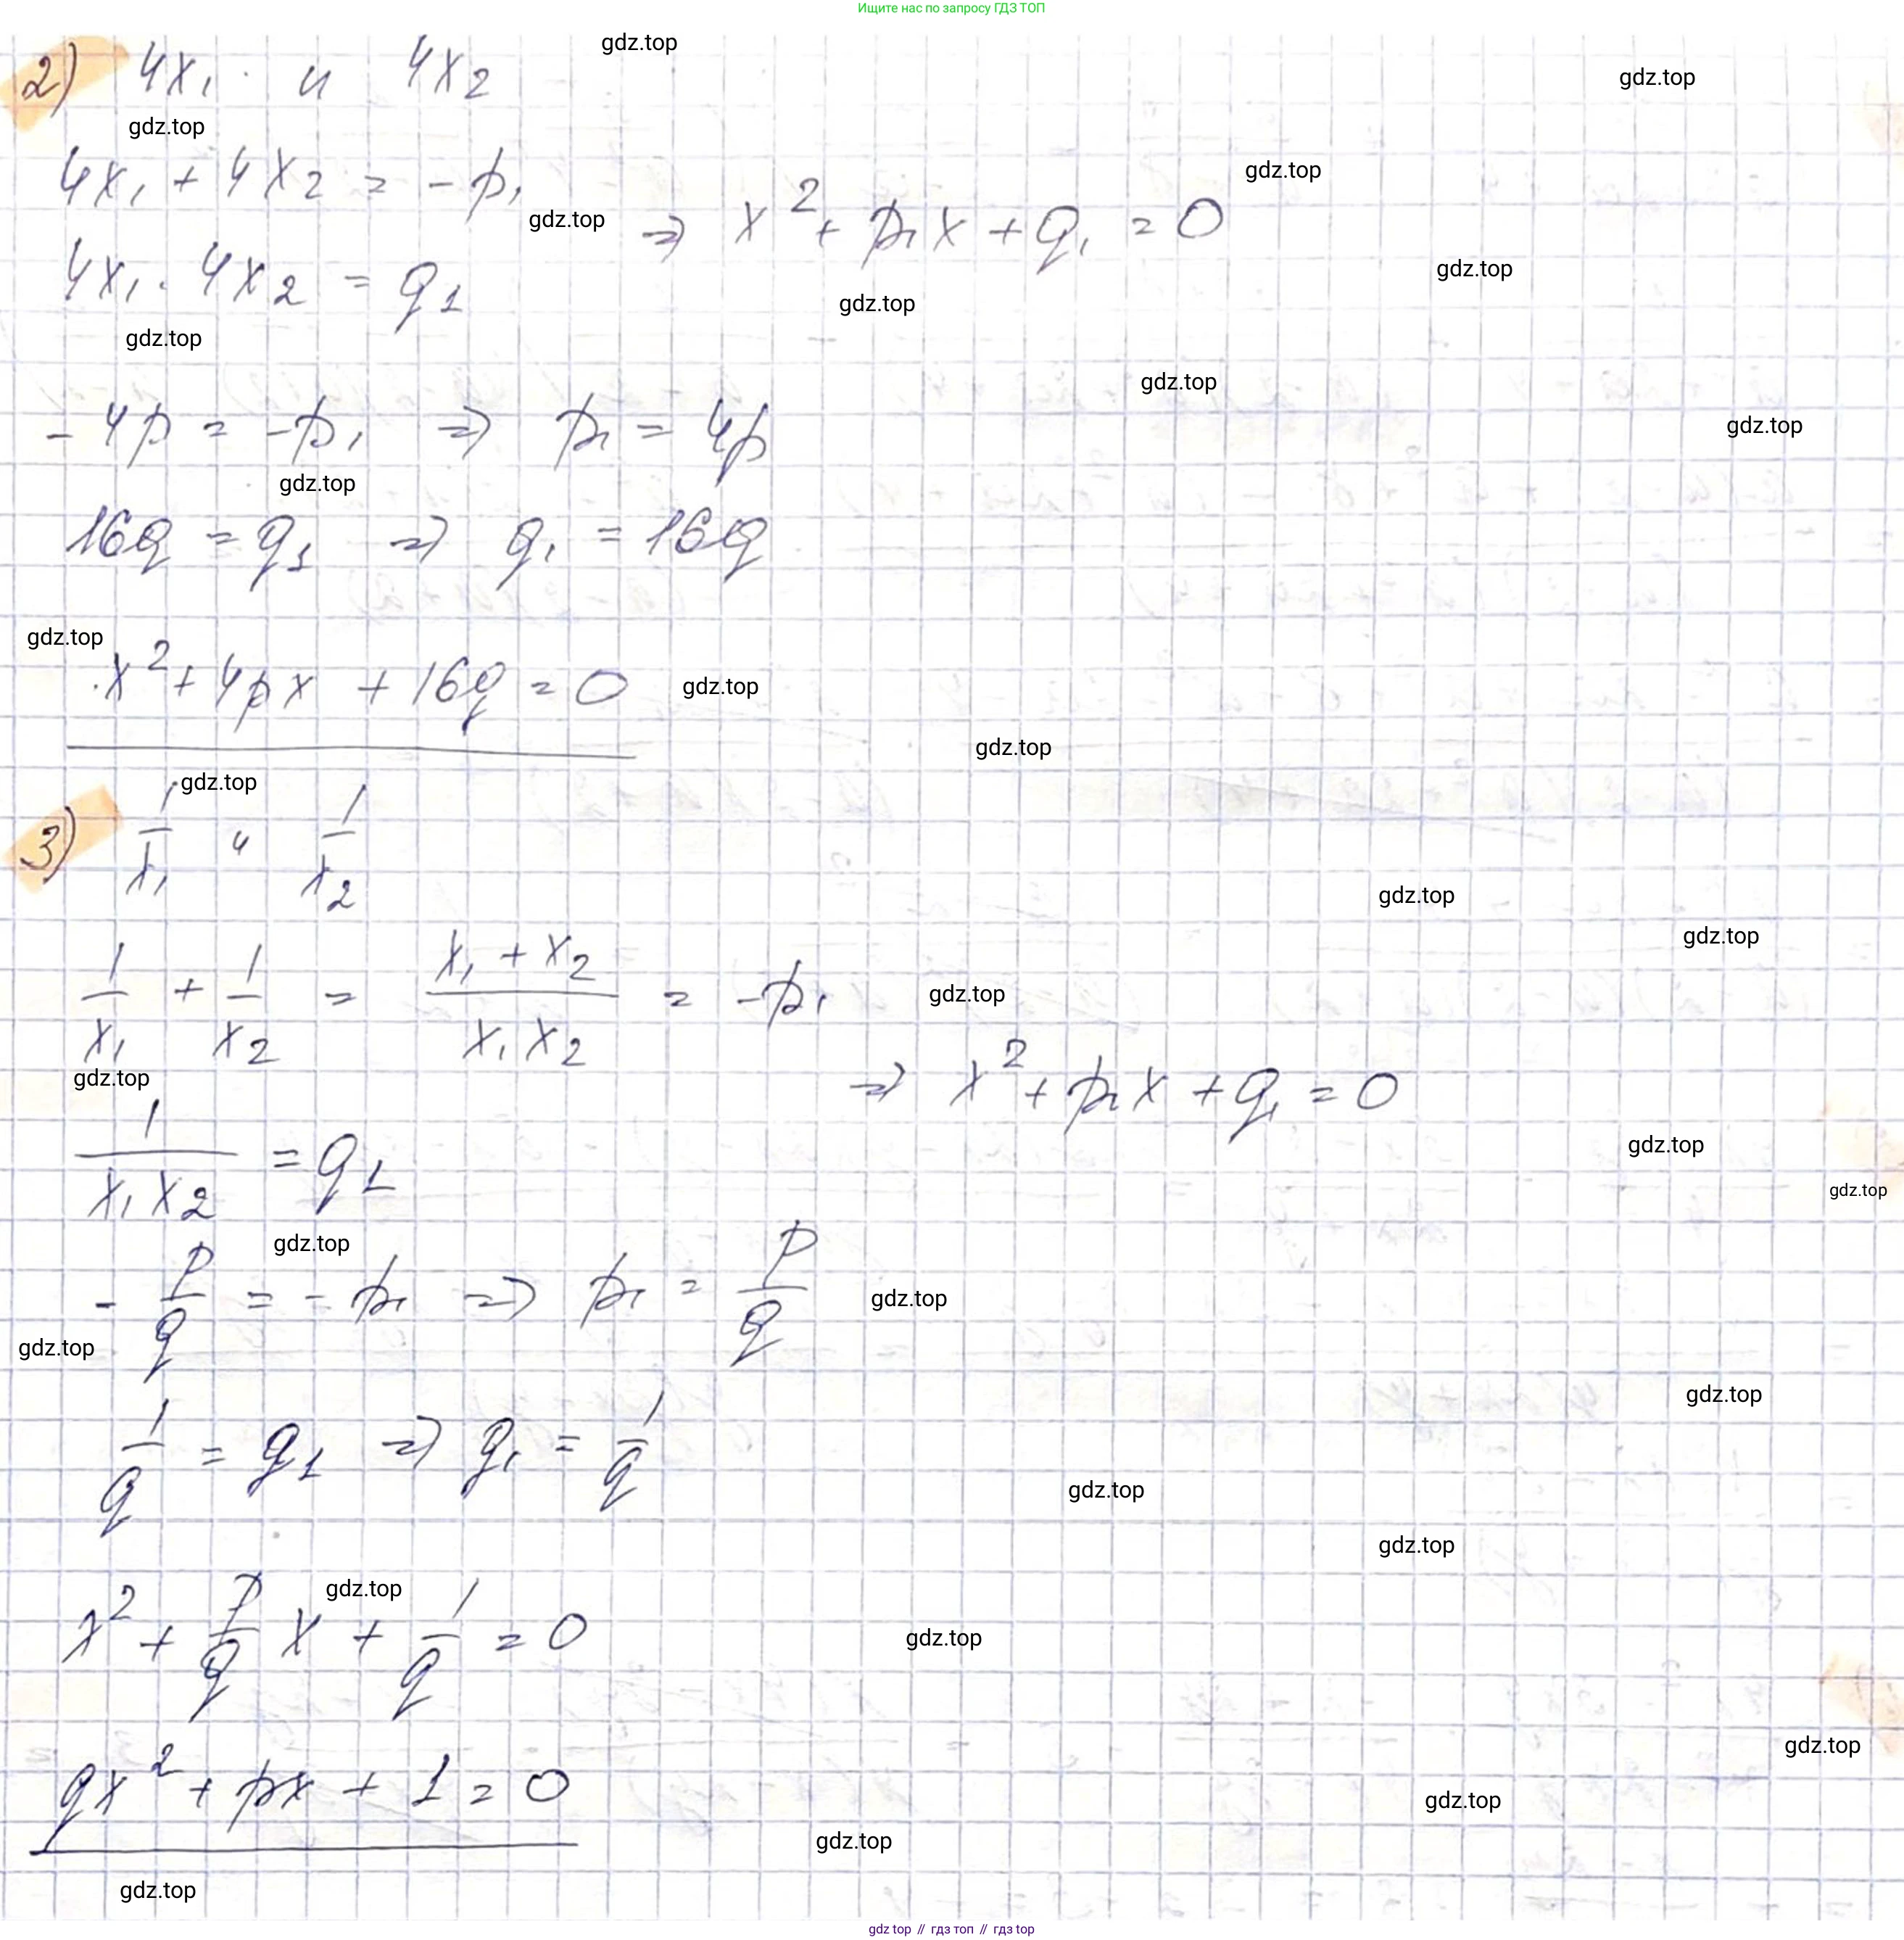 Ищите нас по запросу ГДЗ ТОП
gdz.top
2) 4x₁ и 4x₂
gdz.top
gdz.top
4x₁ + 4x₂ = -p₁
gdz.top
gdz.top
⇒ x² + p₁x + q₁ = 0
4x₁ · 4x₂ = q₁
gdz.top
gdz.top
gdz.top
gdz.top
-4p = -p₁ ⇒ p₁ = 4p
gdz.top
gdz.top
16q = q₁ ⇒ q₁ = 16q
gdz.top
x² + 4px + 16q = 0
gdz.top
gdz.top
gdz.top
3) 1/x₁ и 1/x₂
gdz.top
gdz.top
1/x₁ + 1/x₂ = (x₁ + x₂)/(x₁x₂) = -p₁
gdz.top
gdz.top
⇒ x² + p₁x + q₁ = 0
1/(x₁x₂) = q₁
gdz.top
gdz.top
gdz.top
-p/q = -p₁ ⇒ p₁ = p/q
gdz.top
gdz.top
gdz.top
1/q = q₁ ⇒ q₁ = 1/q
gdz.top
gdz.top
gdz.top
x² + p/q x + 1/q = 0
gdz.top
gdz.top
qx² + px + 1 = 0
gdz.top
gdz.top
gdz.top
gdz top // гдз топ // гдз top